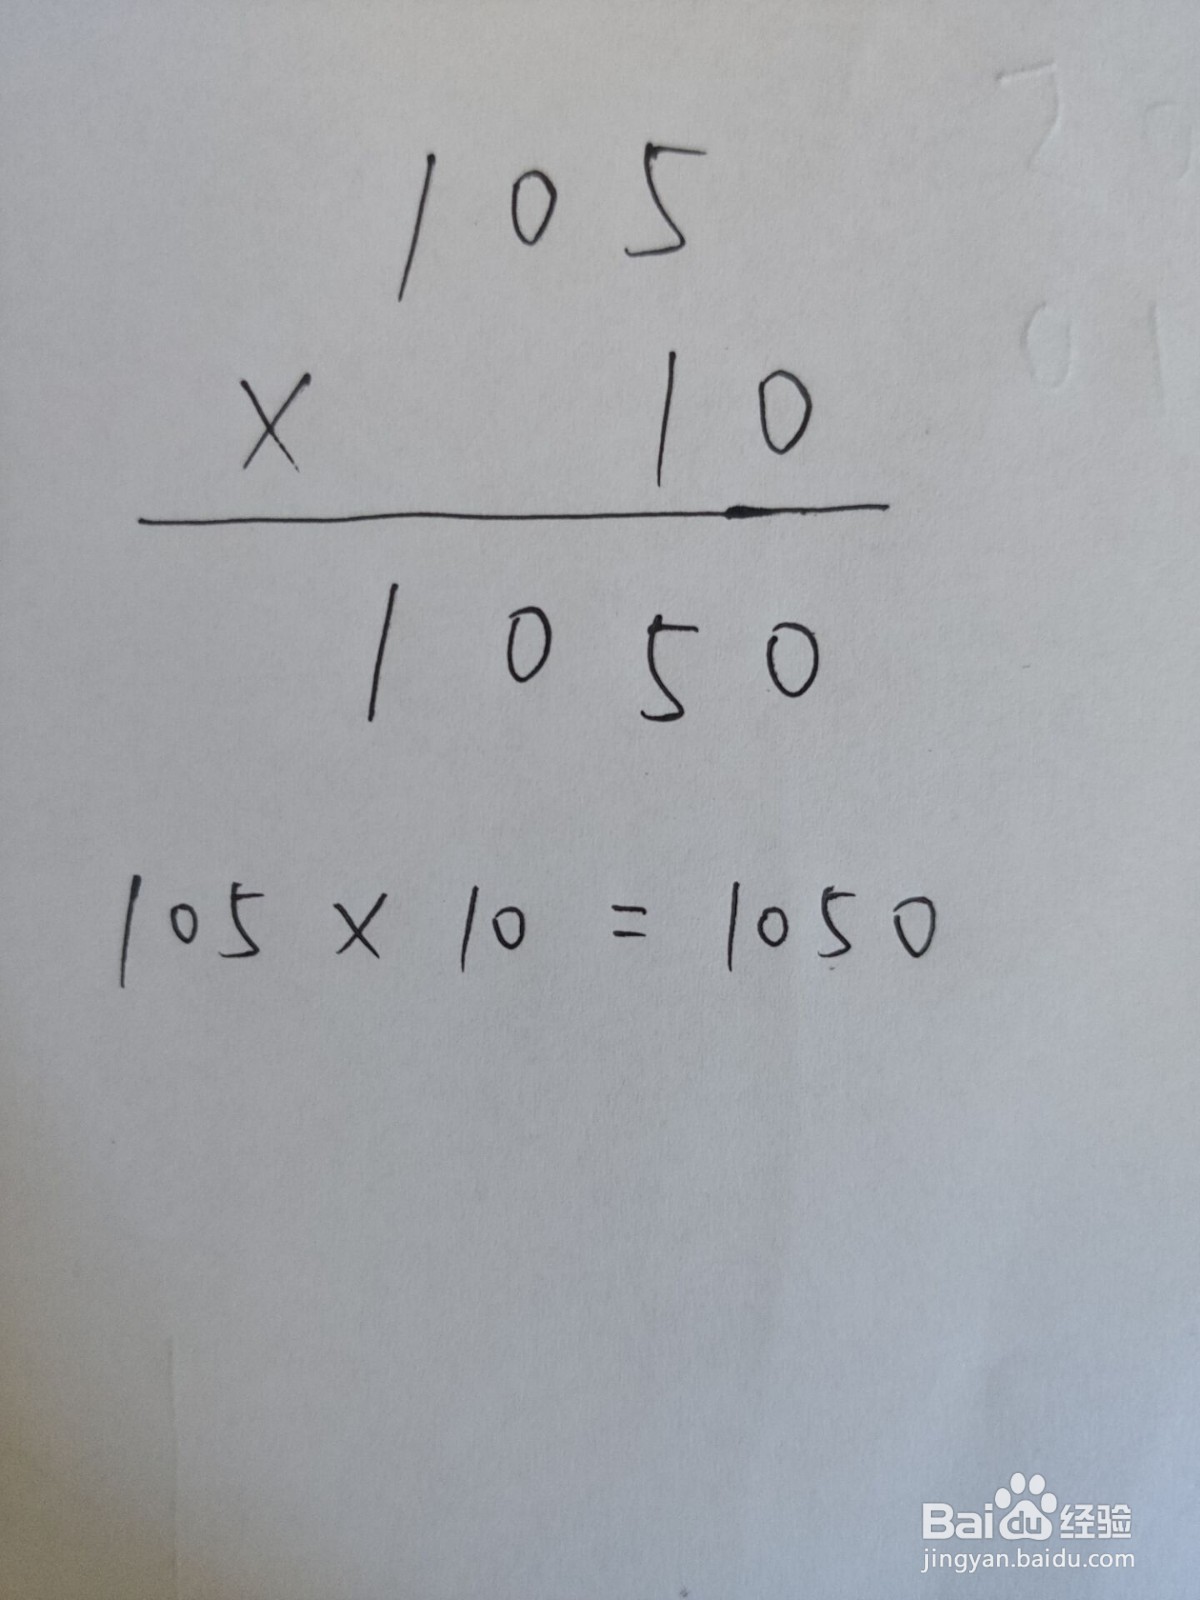 105
× 10
1050
105 × 10 = 1050
Baidu 经验
jingyan.baidu.com